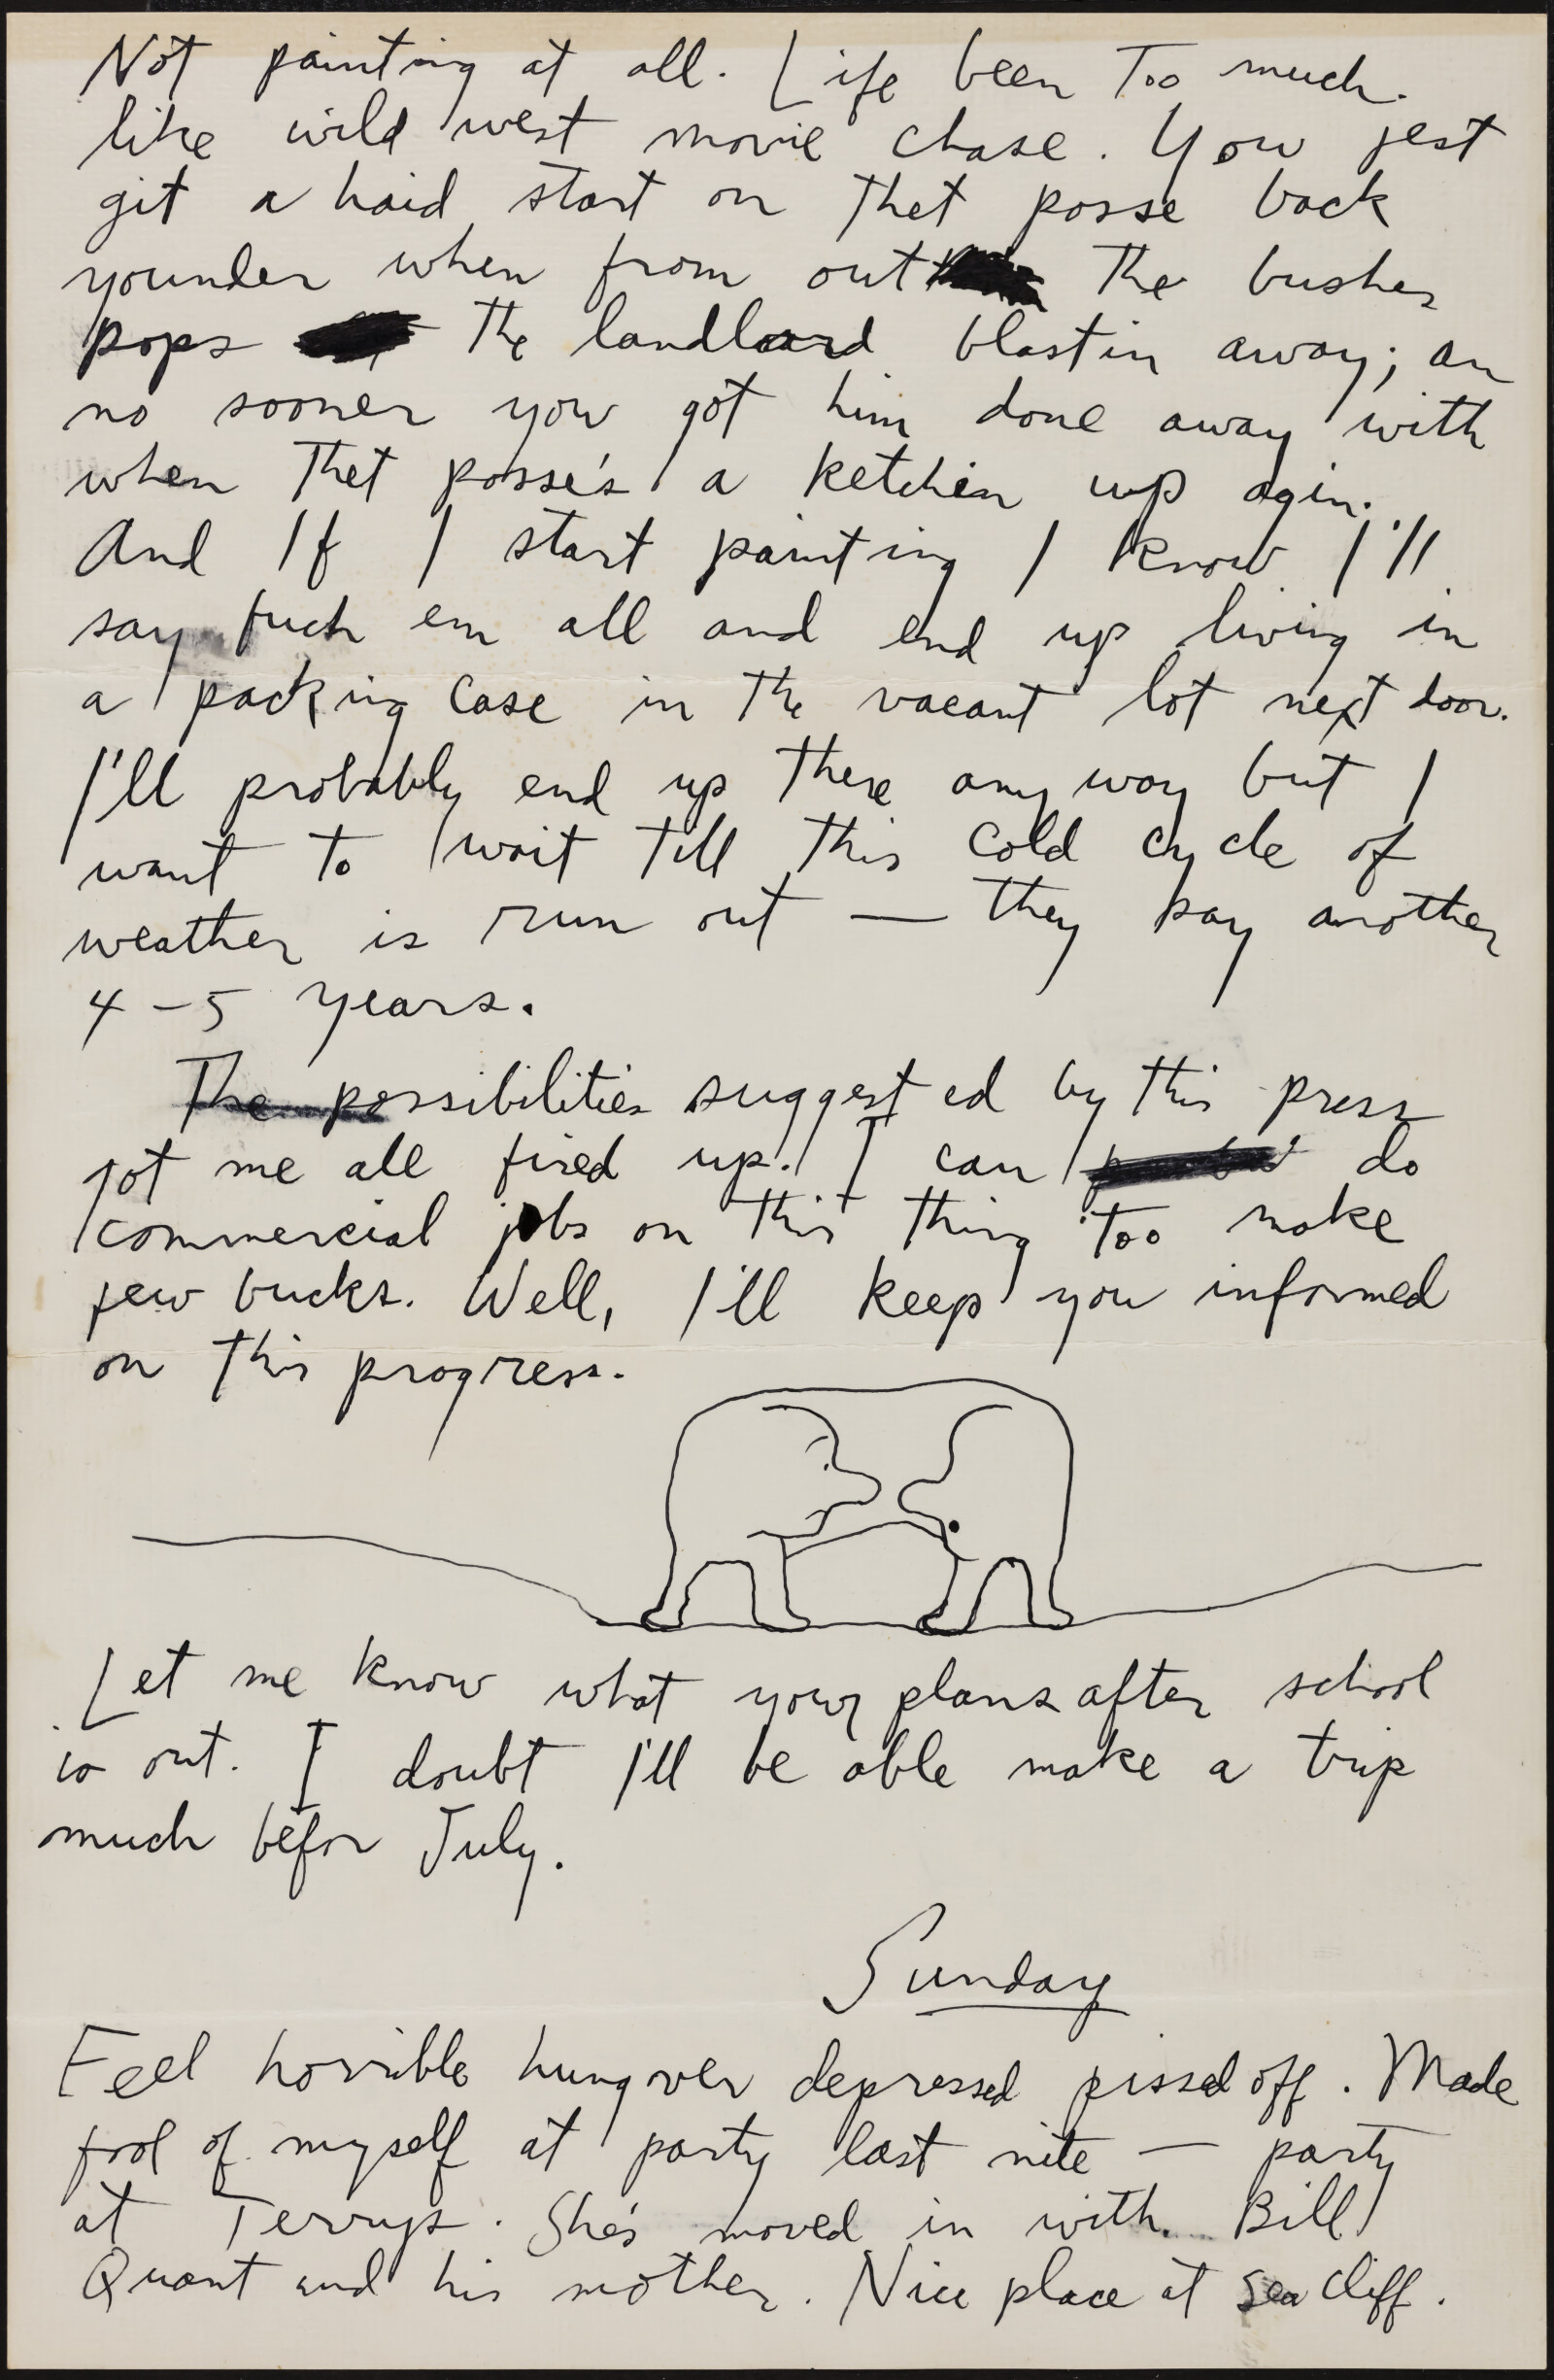 Not painting at all. Life been Too much.
like wild west movie chase. You jest
git a haid start on thet posse back
younder when from out the bushes
pops the landloard blastin away; an
no sooner you got him done away with
when Thet posse's a ketchin up agin.
And If I start painting I know I'll
say fuck em all and end up living in
a packing case in the vacant lot next door.
I'll probably end up there anyway but I
want to wait till this cold cycle of
weather is run out — they say another
4-5 years.
The possibilities suggested by this press
got me all fired up. I can do
commercial jobs on this thing too make
few bucks. Well, I'll keep you informed
on this progress.
Let me know what your plans after school
is out. I doubt I'll be able make a trip
much befor July.
Sunday
Feel horrible hungover depressed pissed off. Made
fool of myself at party last nite — party
at Terrys. She's moved in with Bill
Quant and his mother. Nice place at Sea Cliff.